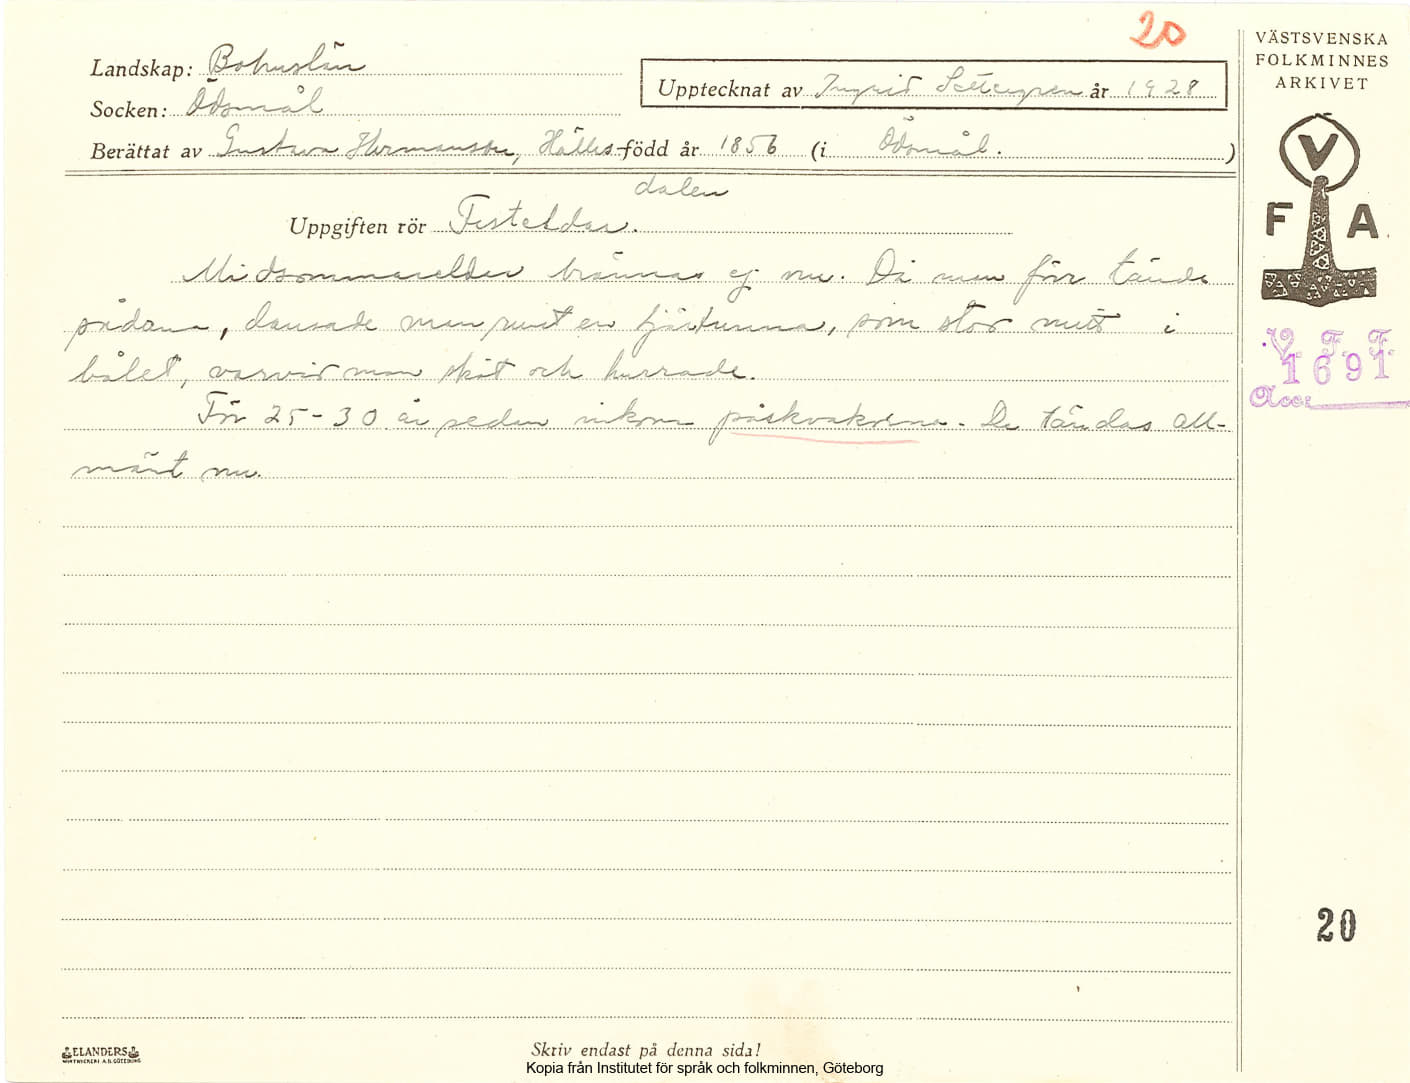 20
VÄSTSVENSKA
FOLKMINNES
ARKIVET
Landskap: Bohuslän
Upptecknat av Ingrid Settergren år 1928
Socken: Ödsmål
Berättat av Gustava Hermansson, Hälles- född år 1856 (i Ödsmål.)
dalen
Uppgiften rör Festeldar.
V
F A
Midsommareldar brännas ej nu. Då man förr tände
sådana, dansade man runt en tjärtunna, som stod mitt i
bålet, varvid man sköt och hurrade.
För 25-30 år sedan inkom påskvakorna. De tändas all-
mänt nu.
V. F. F.
1691
Acc:
20
ELANDERS
Skriv endast på denna sida!
Kopia från Institutet för språk och folkminnen, Göteborg